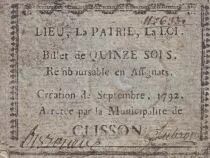 LIEU, La PATRIE, La LOI.
Billet de QUINZE SOLS,
Remboursable en Assignats.
Création de Septembre, 1792.
Arretée par la Municipalité de
CLISSON